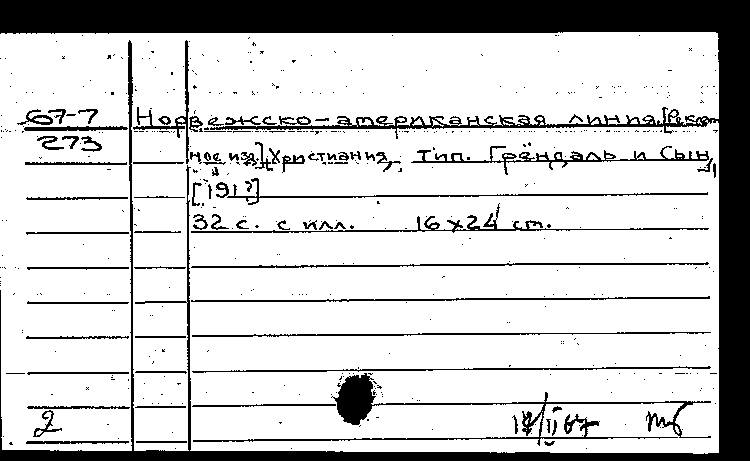 67-7 Норвежско-американская линия. [Реклам
273 ное изд.] Христиания, тип. Грёндаль и Сын,
[191?]
32 с. с илл. 16х24 см.
2 17/II 67